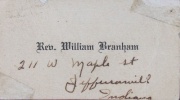 Rev. William Branham
211 W Maple st
Jeffersonvill
Indiana